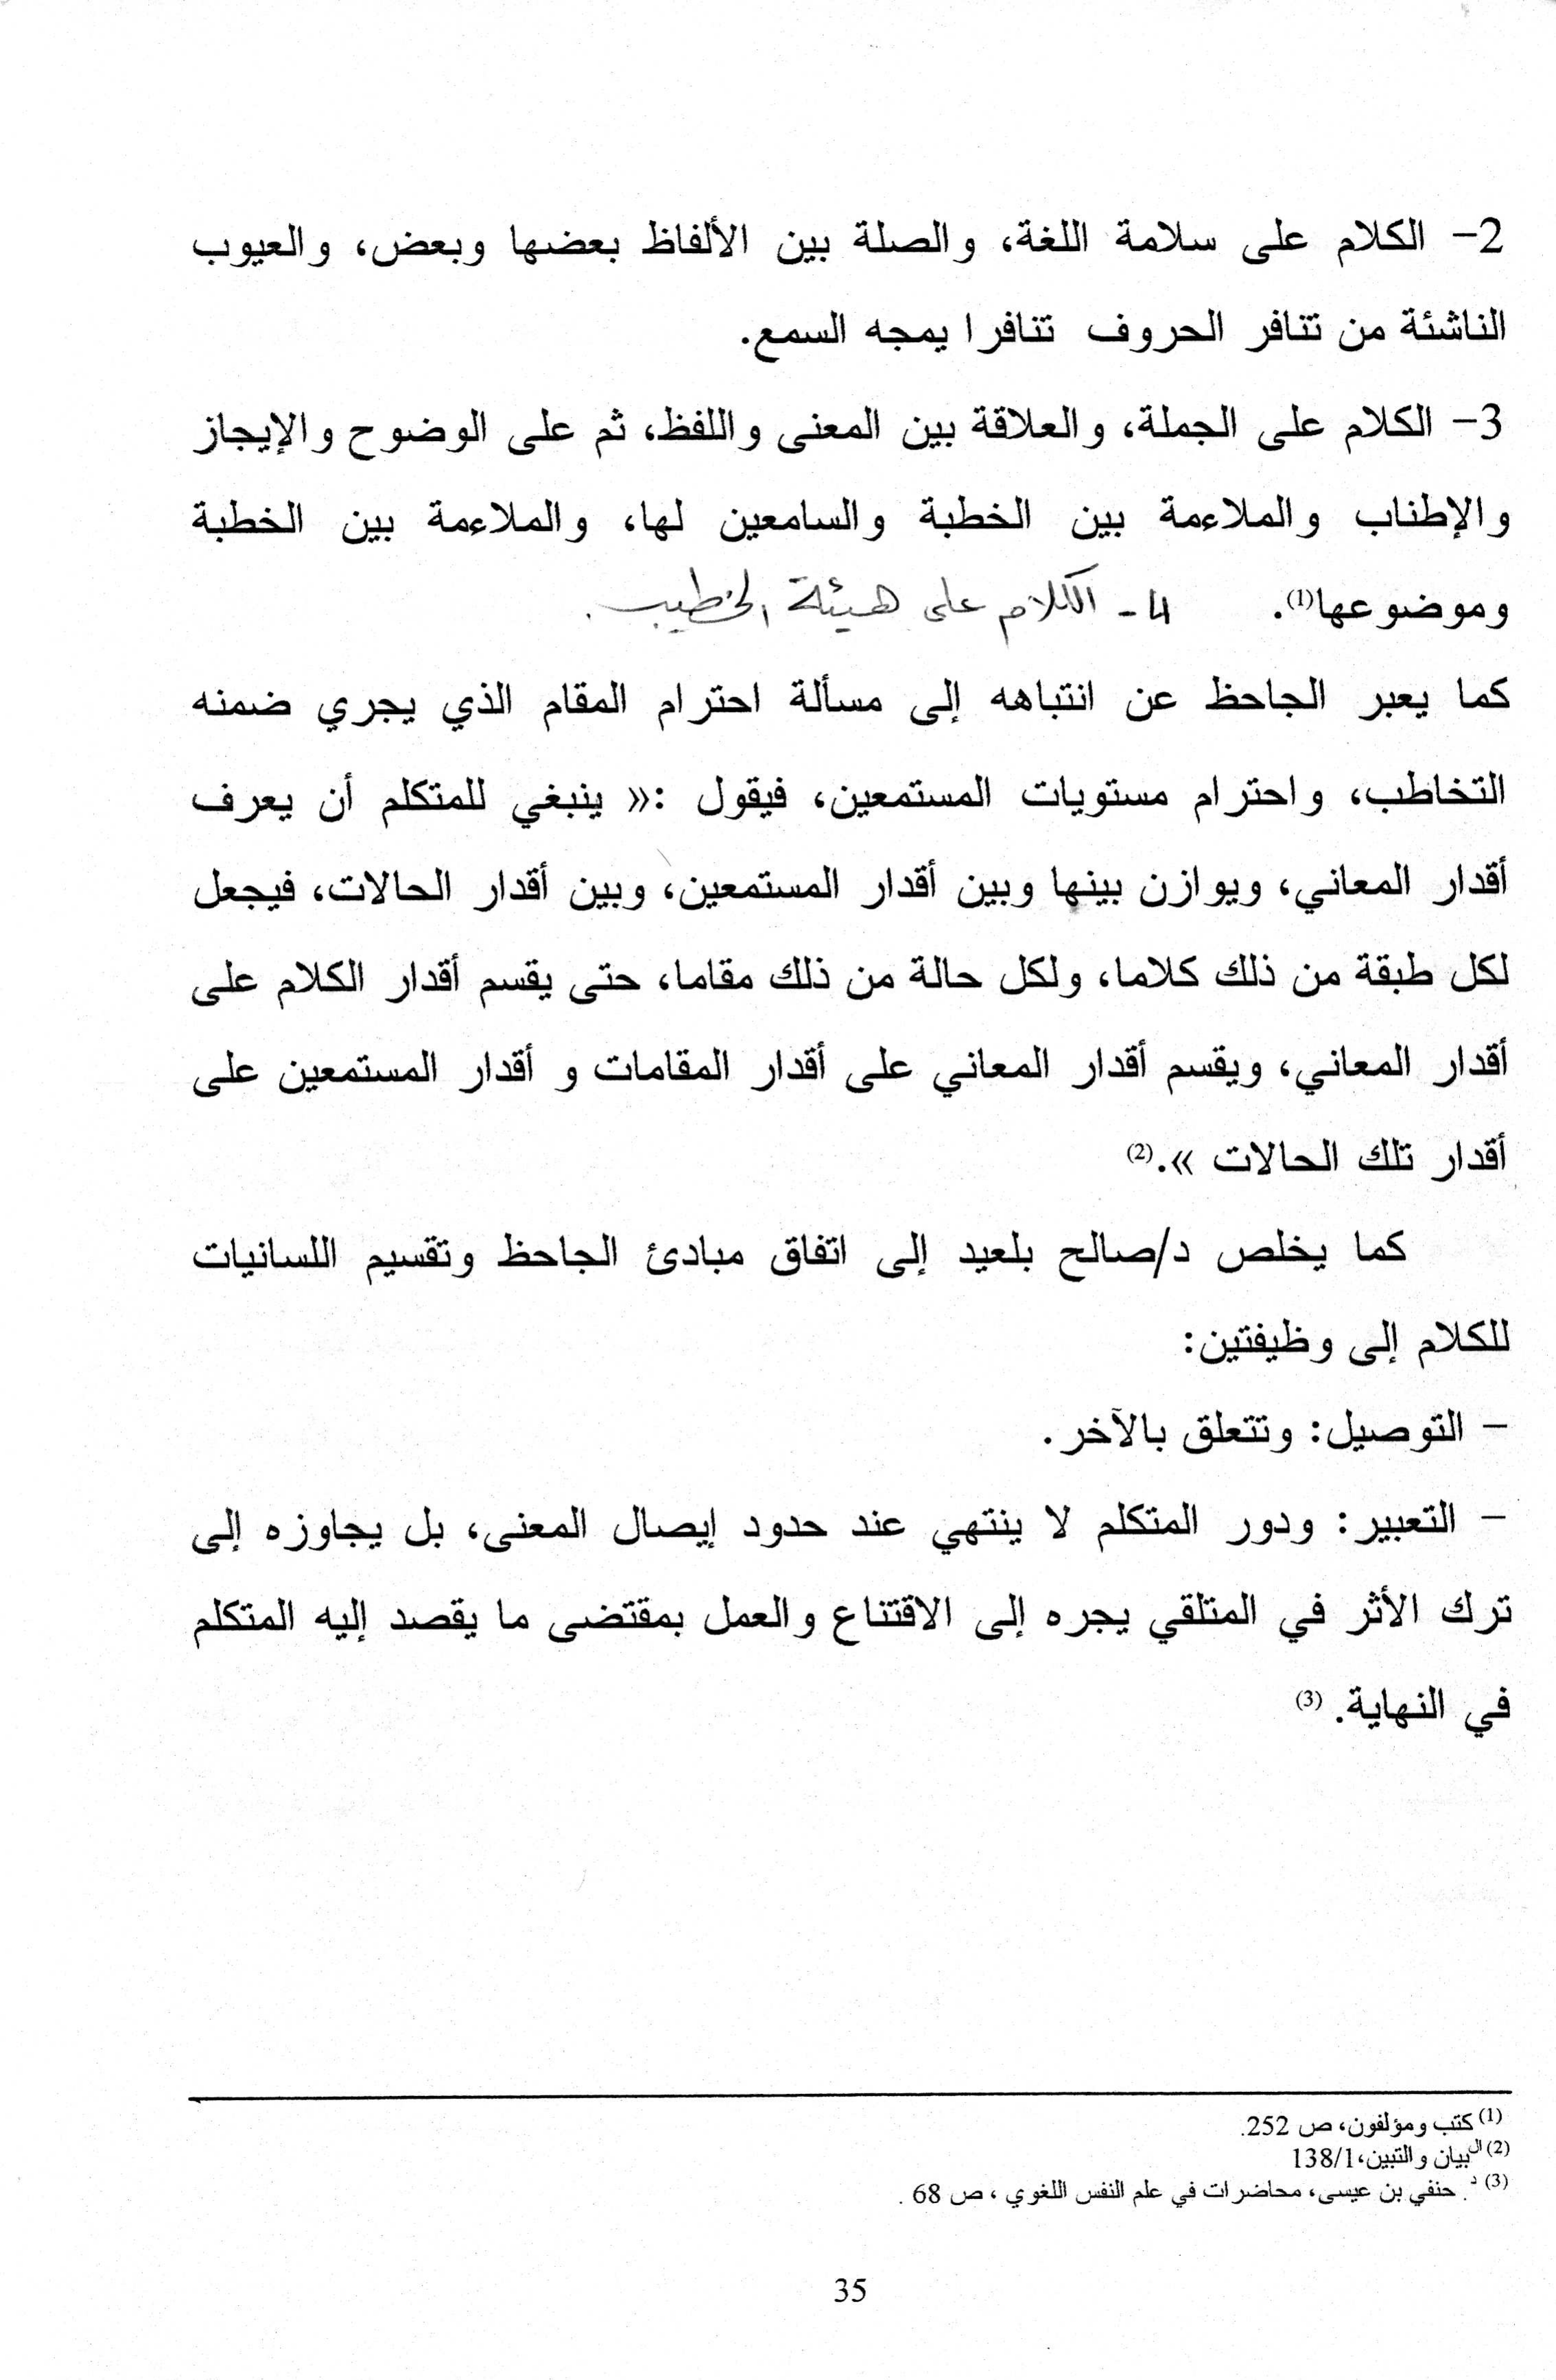 2- الكلام على سلامة اللغة، والصلة بين الألفاظ بعضها وبعض، والعيوب
الناشئة من تنافر الحروف تنافرا يمجه السمع.
3- الكلام على الجملة، والعلاقة بين المعنى واللفظ، ثم على الوضوح والإيجاز
والإطناب والملاءمة بين الخطبة والسامعين لها، والملاءمة بين الخطبة
وموضوعها(1). 4- الكلام على هيئة الخطيب.
كما يعبر الجاحظ عن انتباهه إلى مسألة احترام المقام الذي يجري ضمنه
التخاطب، واحترام مستويات المستمعين، فيقول :« ينبغي للمتكلم أن يعرف
أقدار المعاني، ويوازن بينها وبين أقدار المستمعين، وبين أقدار الحالات، فيجعل
لكل طبقة من ذلك كلاما، ولكل حالة من ذلك مقاما، حتى يقسم أقدار الكلام على
أقدار المعاني، ويقسم أقدار المعاني على أقدار المقامات و أقدار المستمعين على
أقدار تلك الحالات ».(2)
كما يخلص د/صالح بلعيد إلى اتفاق مبادئ الجاحظ وتقسيم اللسانيات
للكلام إلى وظيفتين:
- التوصيل: وتتعلق بالآخر.
- التعبير: ودور المتكلم لا ينتهي عند حدود إيصال المعنى، بل يجاوزه إلى
ترك الأثر في المتلقي يجره إلى الاقتناع والعمل بمقتضى ما يقصد إليه المتكلم
في النهاية. (3)
(1) كتب ومؤلفون، ص 252.
(2) البيان والتبين،138/1
(3) د. حنفي بن عيسى، محاضرات في علم النفس اللغوي ، ص 68 .
35